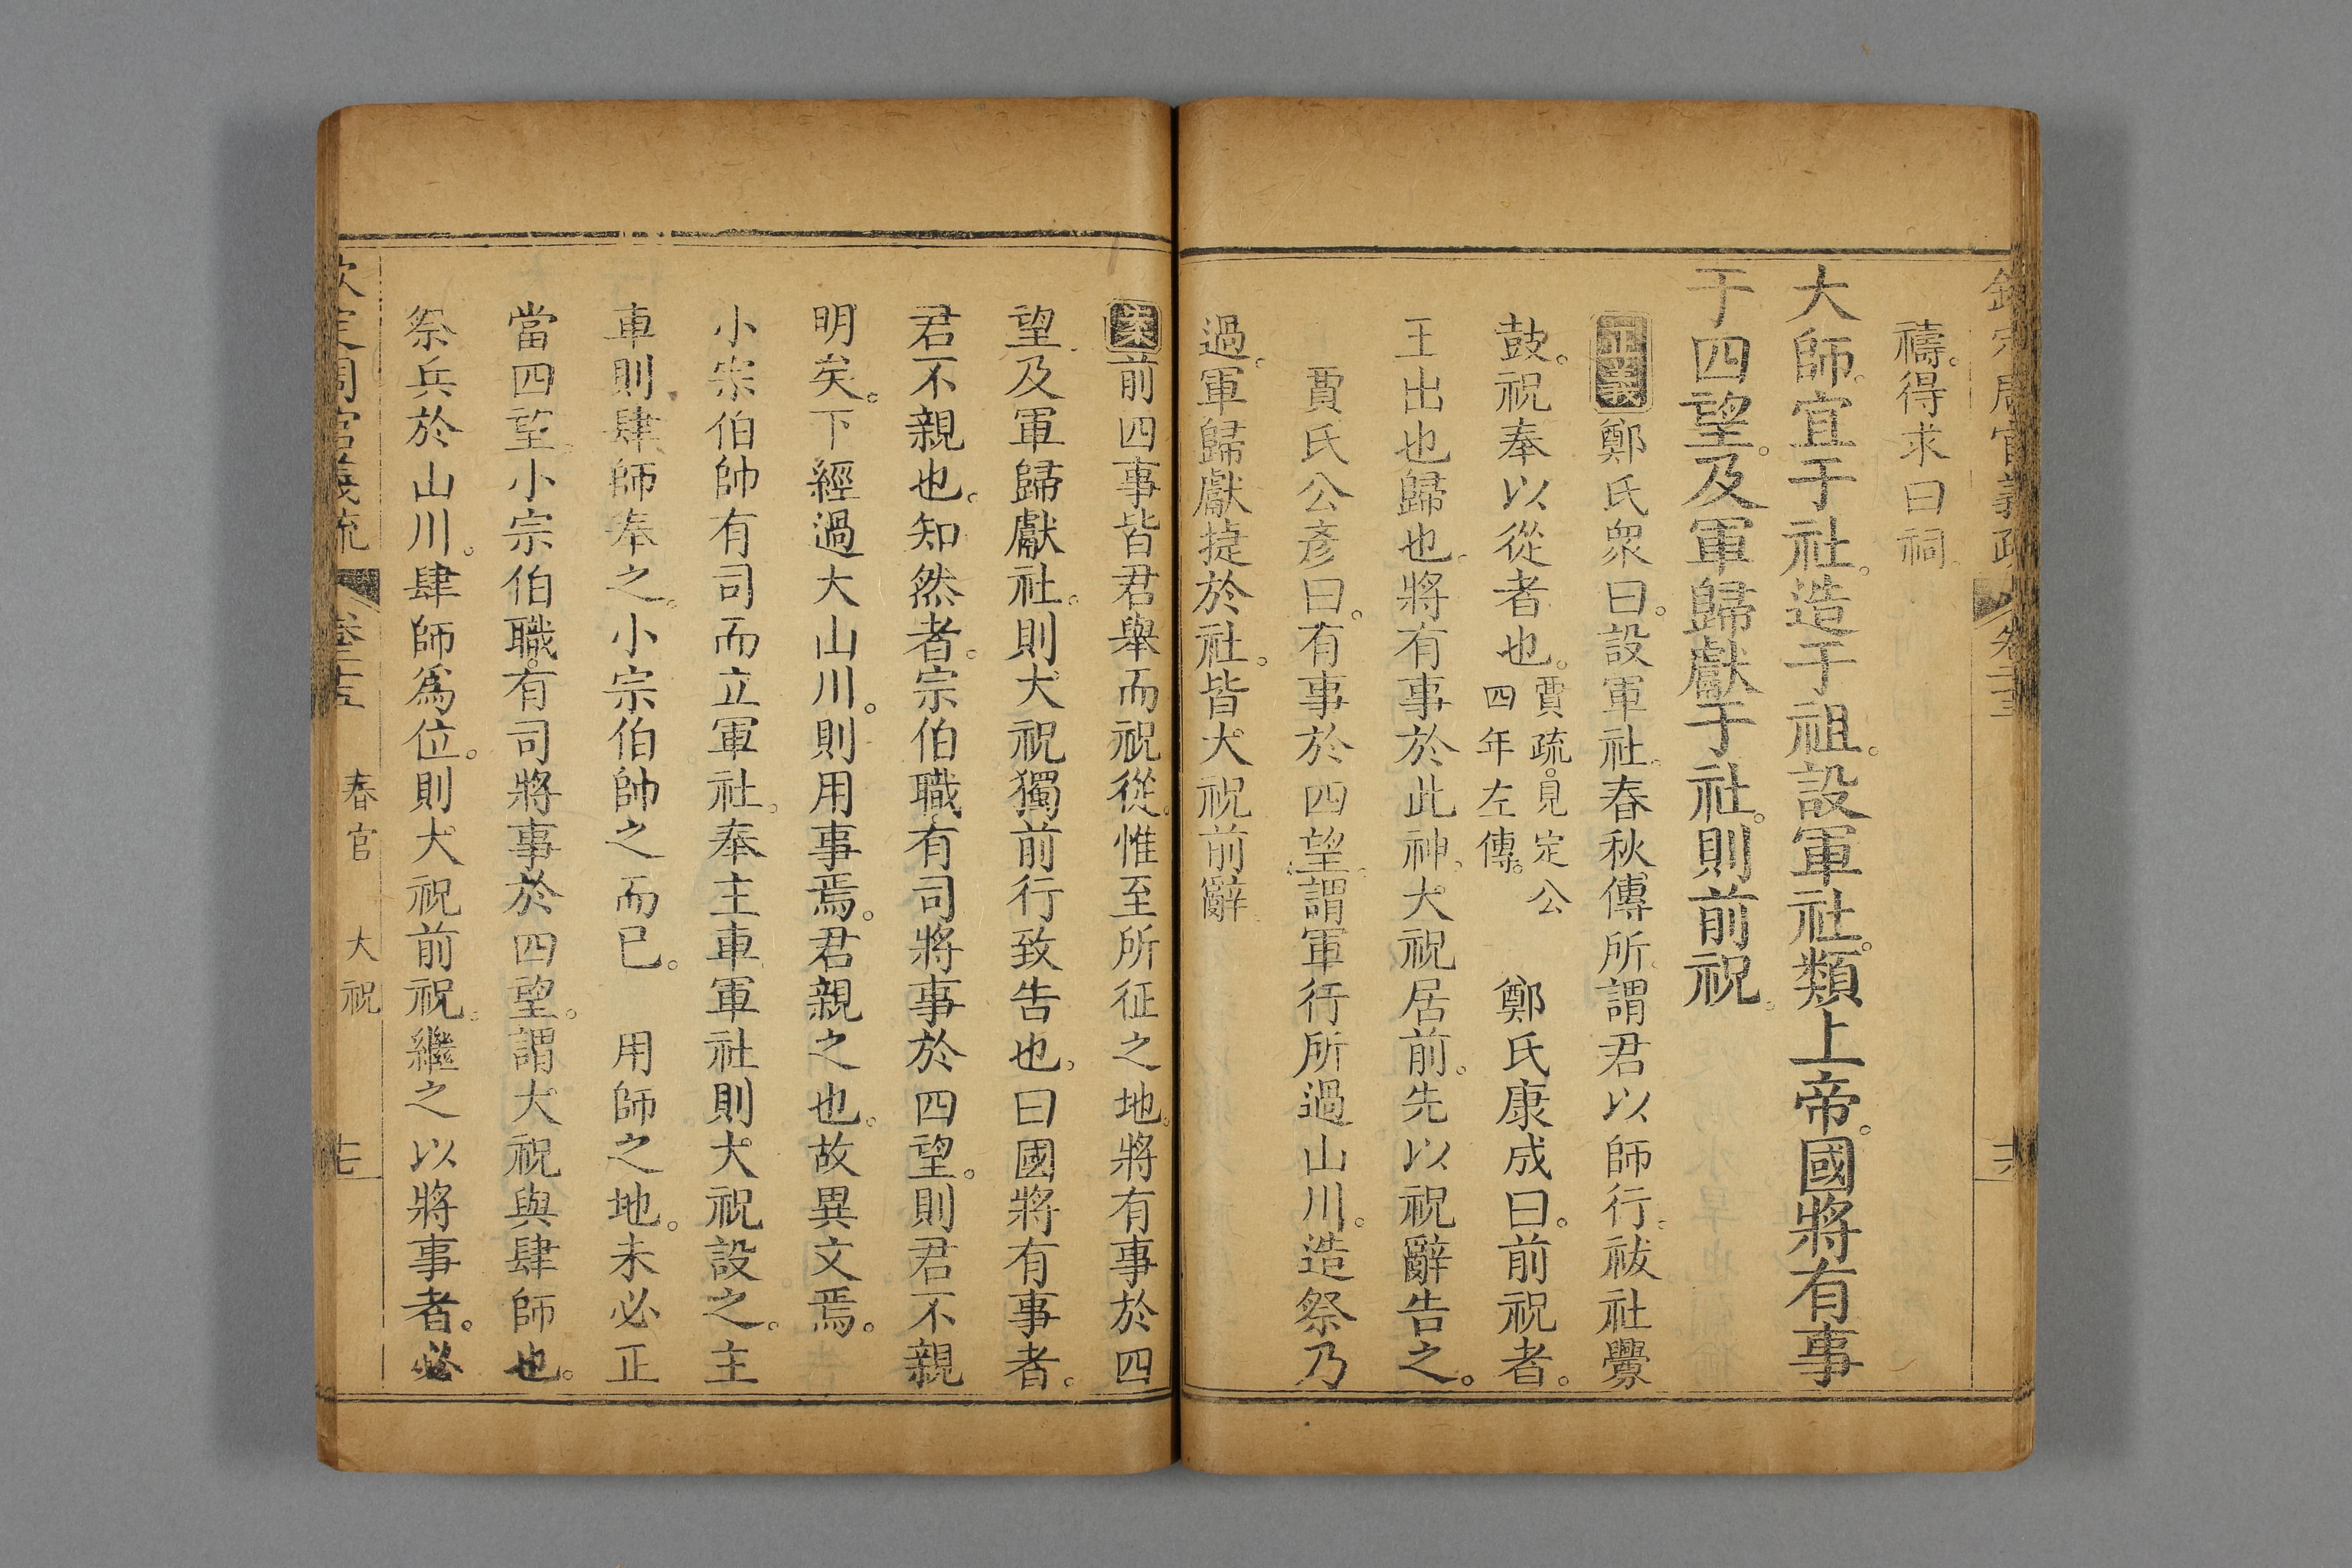 欽定周官義疏 卷二十五 十六
禱。得求曰祠。
大師。宜于社。造于祖。設軍社。類上帝。國將有事
于四望。及軍歸獻于社。則前祝。
正義鄭氏衆曰。設軍社。春秋傳所謂君以師行。祓社釁
鼓。祝奉以從者也。賈疏。見定公四年左傳。 鄭氏康成曰。前祝者。
王出也。歸也。將有事於此神。大祝居前。先以祝辭告之。
賈氏公彥曰。有事於四望。謂軍行所過山川。造祭乃
過。軍歸獻捷於社。皆大祝前辭。
案前四事皆君舉而祝從。惟至所征之地。將有事於四
望。及軍歸獻社。則大祝獨前行致告也。曰國將有事者。
君不親也。知然者。宗伯職。有司將事於四望。則君不親
明矣。下經過大山川。則用事焉。君親之也。故異文焉。
小宗伯帥有司而立軍社。奉主車。軍社則大祝設之。主
車則肆師奉之。小宗伯帥之而已。 用師之地。未必正
當四望。小宗伯職。有司將事於四望。謂大祝與肆師也。
祭兵於山川。肆師爲位。則大祝前祝。繼之以將事者。必
欽定周官義疏 卷二十五 春官 大祝 十七